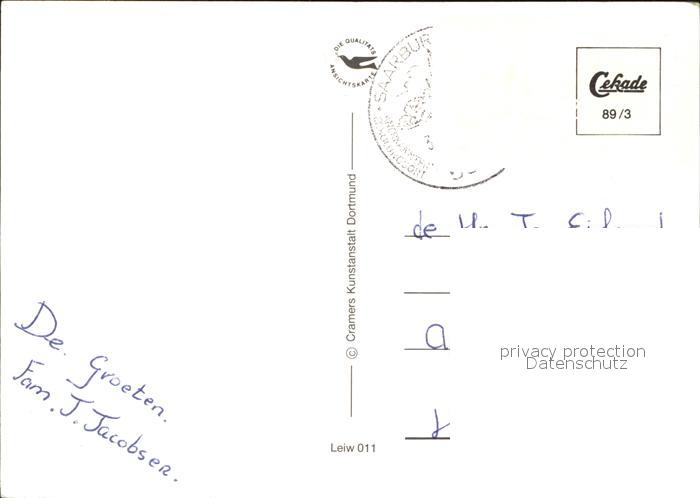 DIE QUALITÄTS
ANSICHTSKARTE
SAARBUR
Cekade
89/3
© Cramers Kunstanstalt Dortmund
de
a
privacy protection
Datenschutz
De Groeten.
Fam. J. Jacobsen.
Leiw 011